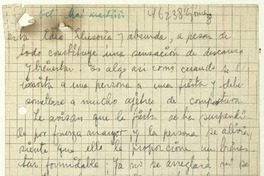 esta idea ilusoria y absurda, a pesar de
todo constituye una sensación de descanso
y bienestar. Es algo así como cuando se
invita a una persona a una fiesta y debe
someterse a mucho ajetreo de compostura
Le avisan que la fiesta se ha suspendi
do por fuerza mayor y la persona se alivia,
siente que ello le proporciona un bienes
tar formidable. Ya no se arreglará ni se